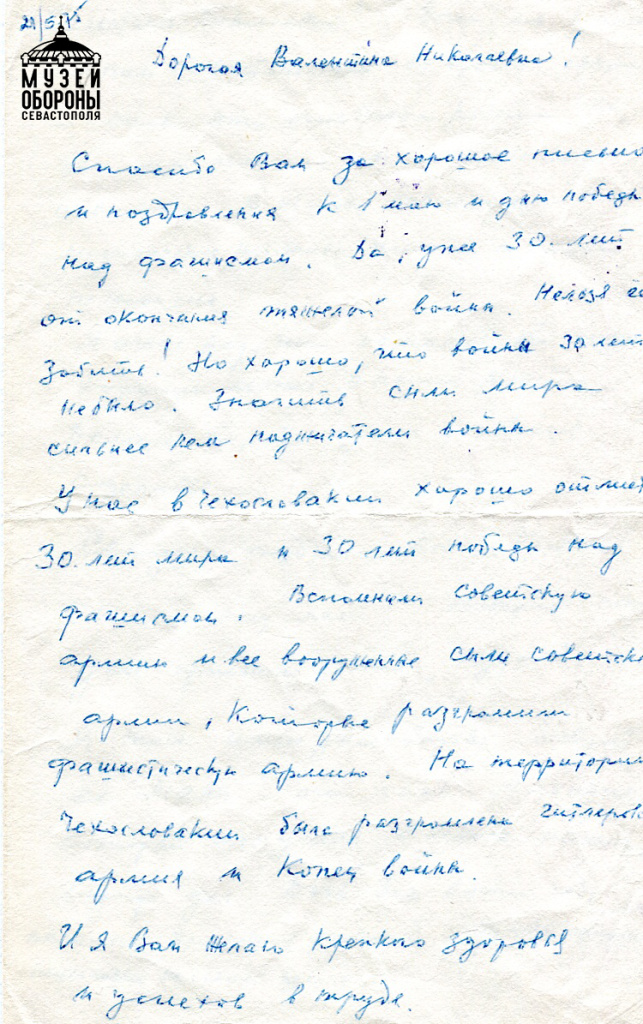 21/5 75
МУЗЕЙ
ОБОРОНЫ
СЕВАСТОПОЛЯ
Дорогая Валентина Николаевна!
Спасибо Вам за хорошое письмо
и поздравления к 1 маю и дню победы
над фашисмом. Да, уже 30. лет
от окончания тяжелой войны. Нельзя её
забыть! Но хорошо, что войны 30 лет
небыло. Значить силы мира
сильнее кем поджигатели войны.
У нас в Чехословакии хорошо отмет
30. лет мира и 30 лет победы над
фашисмом. Вспомнали советскую
армию и все вооруженые силы советск
армии, которые разгромили
фашистическую армию. На территории
Чехословакии была разгромлена гитлеров
армия и конец войны.
И я Вам желаю крепкого здоровья
и успехов в труде.